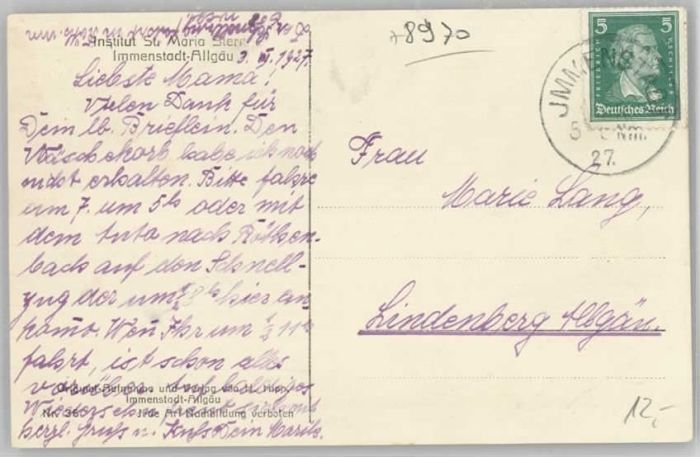 Institut St. Maria Stern
Immenstadt-Allgäu 3. VI. 1927.
Liebste Mama!
Vielen Dank für
Dein lb. Brieflein. Den
Wäschekorb habe ich noch
nicht erhalten. Bitte fahre
am 7. um 5 oder mit
dem Auto nach Röthen-
bach auf den Schnell-
zug der um 8 hier an
kommt. Wen Ihr um ½ 11
fahrt, ist schon alles
Wiedersehen
herzl. Gruß u. Kuß Dein
Original-Aufnahme und Verlag von
Immenstadt-Allgäu
Jede Art Nachbildung verboten
+8970
5 5
FRIEDRICH SCHILLER
Deutsches Reich
27.
Frau
Marie Lang,
Lindenberg Allgäu.
12,-